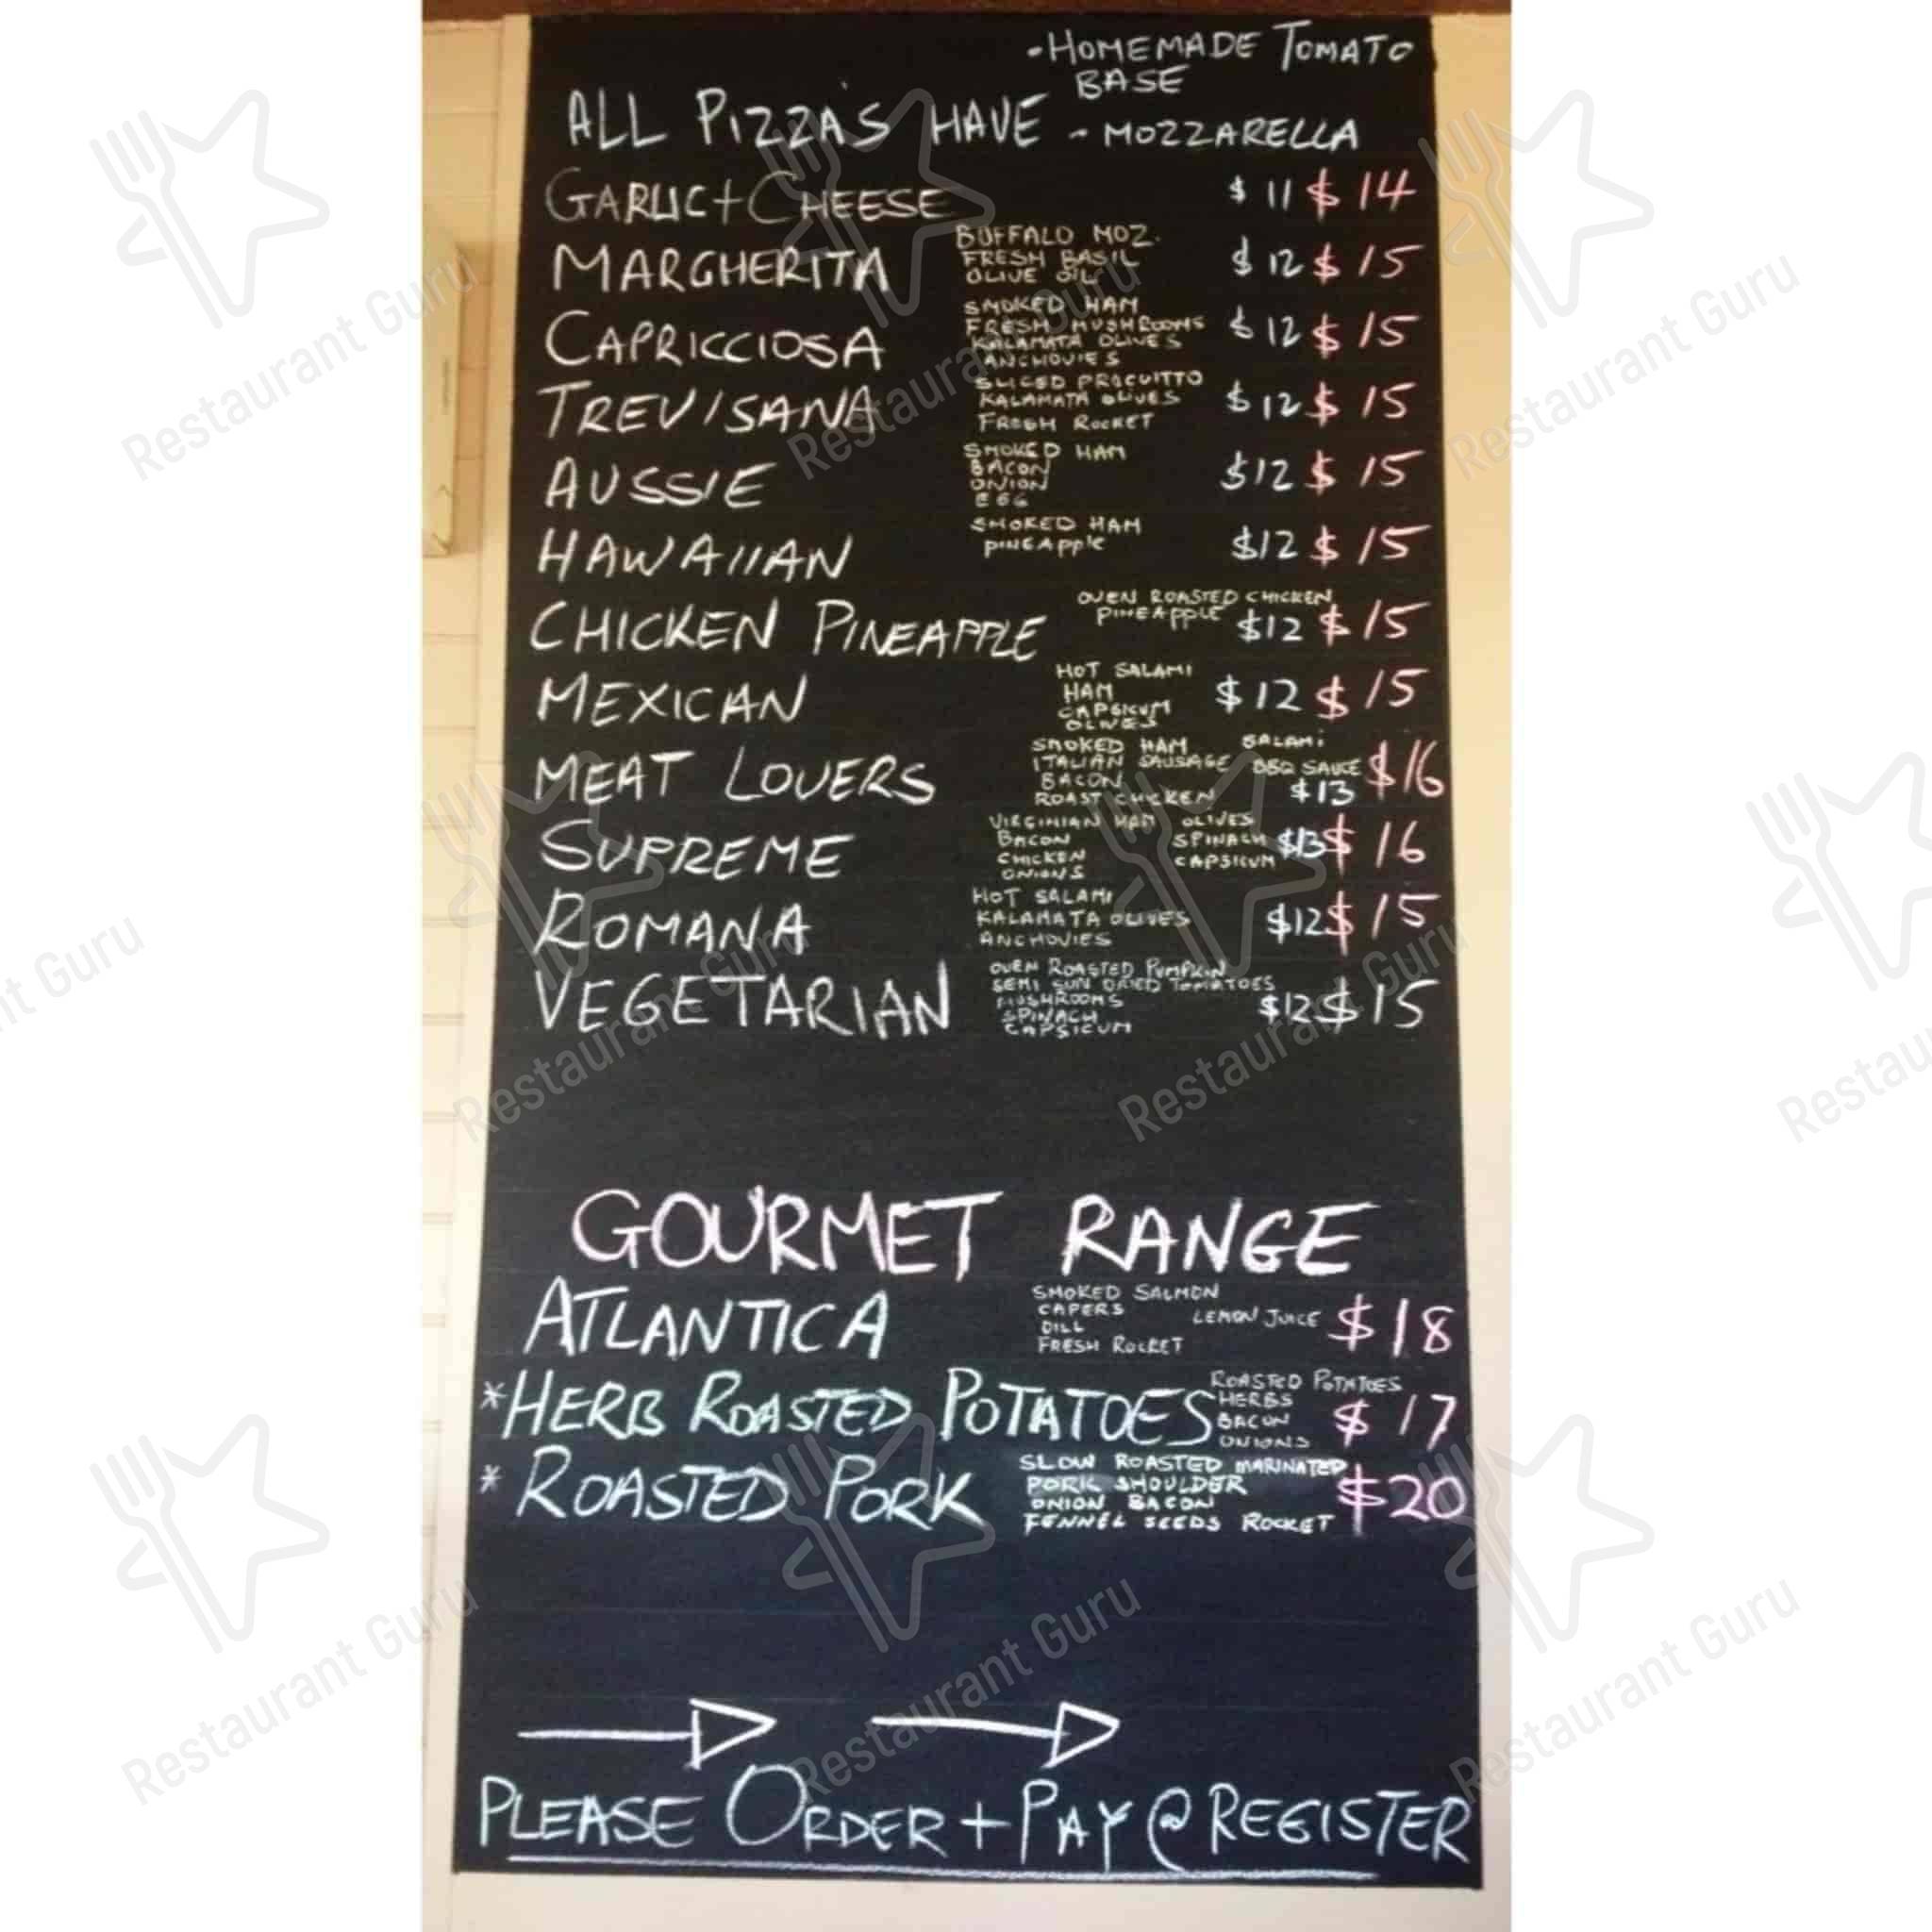 -HOMEMADE TOMATO
BASE
ALL PIZZA'S HAVE - MOZZARELLA
GARLIC+CHEESE $11 $14
BUFFALO MOZ.
MARGHERITA FRESH BASIL $12 $15
OLIVE OIL
SMOKED HAM
FRESH MUSHROOMS
CAPRICCIOSA KALAMATA OLIVES $12 $15
ANCHOVIES
SLICED PROCUITTO
TREVISANA KALAMATA OLIVES $12 $15
FRESH ROCKET
SMOKED HAM
BACON
AUSSIE ONION $12 $15
EGG
SMOKED HAM
HAWAIIAN PINEAPPLE $12 $15
OVEN ROASTED CHICKEN
CHICKEN PINEAPPLE PINEAPPLE $12 $15
HOT SALAMI
MEXICAN HAM $12 $15
CAPSICUM
OLIVES
SMOKED HAM SALAMI
MEAT LOVERS ITALIAN SAUSAGE BBQ SAUCE $16
BACON $13
ROAST CHICKEN
VIRGINIAN HAM OLIVES
SUPREME BACON SPINACH $13 $16
CHICKEN CAPSICUM
ONIONS
HOT SALAMI
ROMANA KALAMATA OLIVES $12 $15
ANCHOVIES
OVEN ROASTED PUMPKIN
SEMI SUN DRIED TOMATOES
VEGETARIAN MUSHROOMS $12 $15
SPINACH
CAPSICUM
GOURMET RANGE
SMOKED SALMON
CAPERS
ATLANTICA DILL LEMON JUICE $18
FRESH ROCKET
ROASTED POTATOES
*HERB ROASTED POTATOES HERBS $17
BACON
ONIONS
SLOW ROASTED MARINATED
* ROASTED PORK PORK SHOULDER $20
ONION BACON
FENNEL SEEDS ROCKET
PLEASE ORDER + PAY @ REGISTER
Restaurant Guru